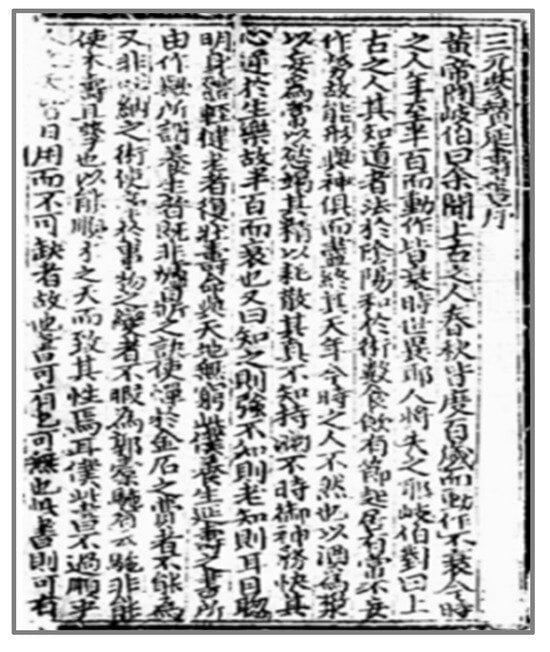 三元參贊延壽書序
黃帝問岐伯曰余聞上古之人春秋皆度百歲而動作不衰今時
之人年至半百而動作皆衰時世異耶人將失之耶岐伯對曰上
古之人其知道者法於陰陽和於術數食飲有節起居有常不妄
作勞故能形與神俱而盡終其天年今時之人不然也以酒為漿
以妄為常以慾竭其精以耗散其真不知持滿不時御神務快其
心逆於生樂故半百而衰也又曰知之則強不知則老知則耳目聰
明身體輕健老者復壯壽命與天地無窮此僕養生延壽之書所
由作與所謂養生者既非爐鼎之訣使憚於金石之費者不能為
又非吐納之術使牽於事物之變者不暇為郭橐駝有云駝非能
使木壽且孳也以能順木之天而致其性焉耳僕此書不過順乎
人之天皆日用而不可缺者故他書可有也可無也此書則可有